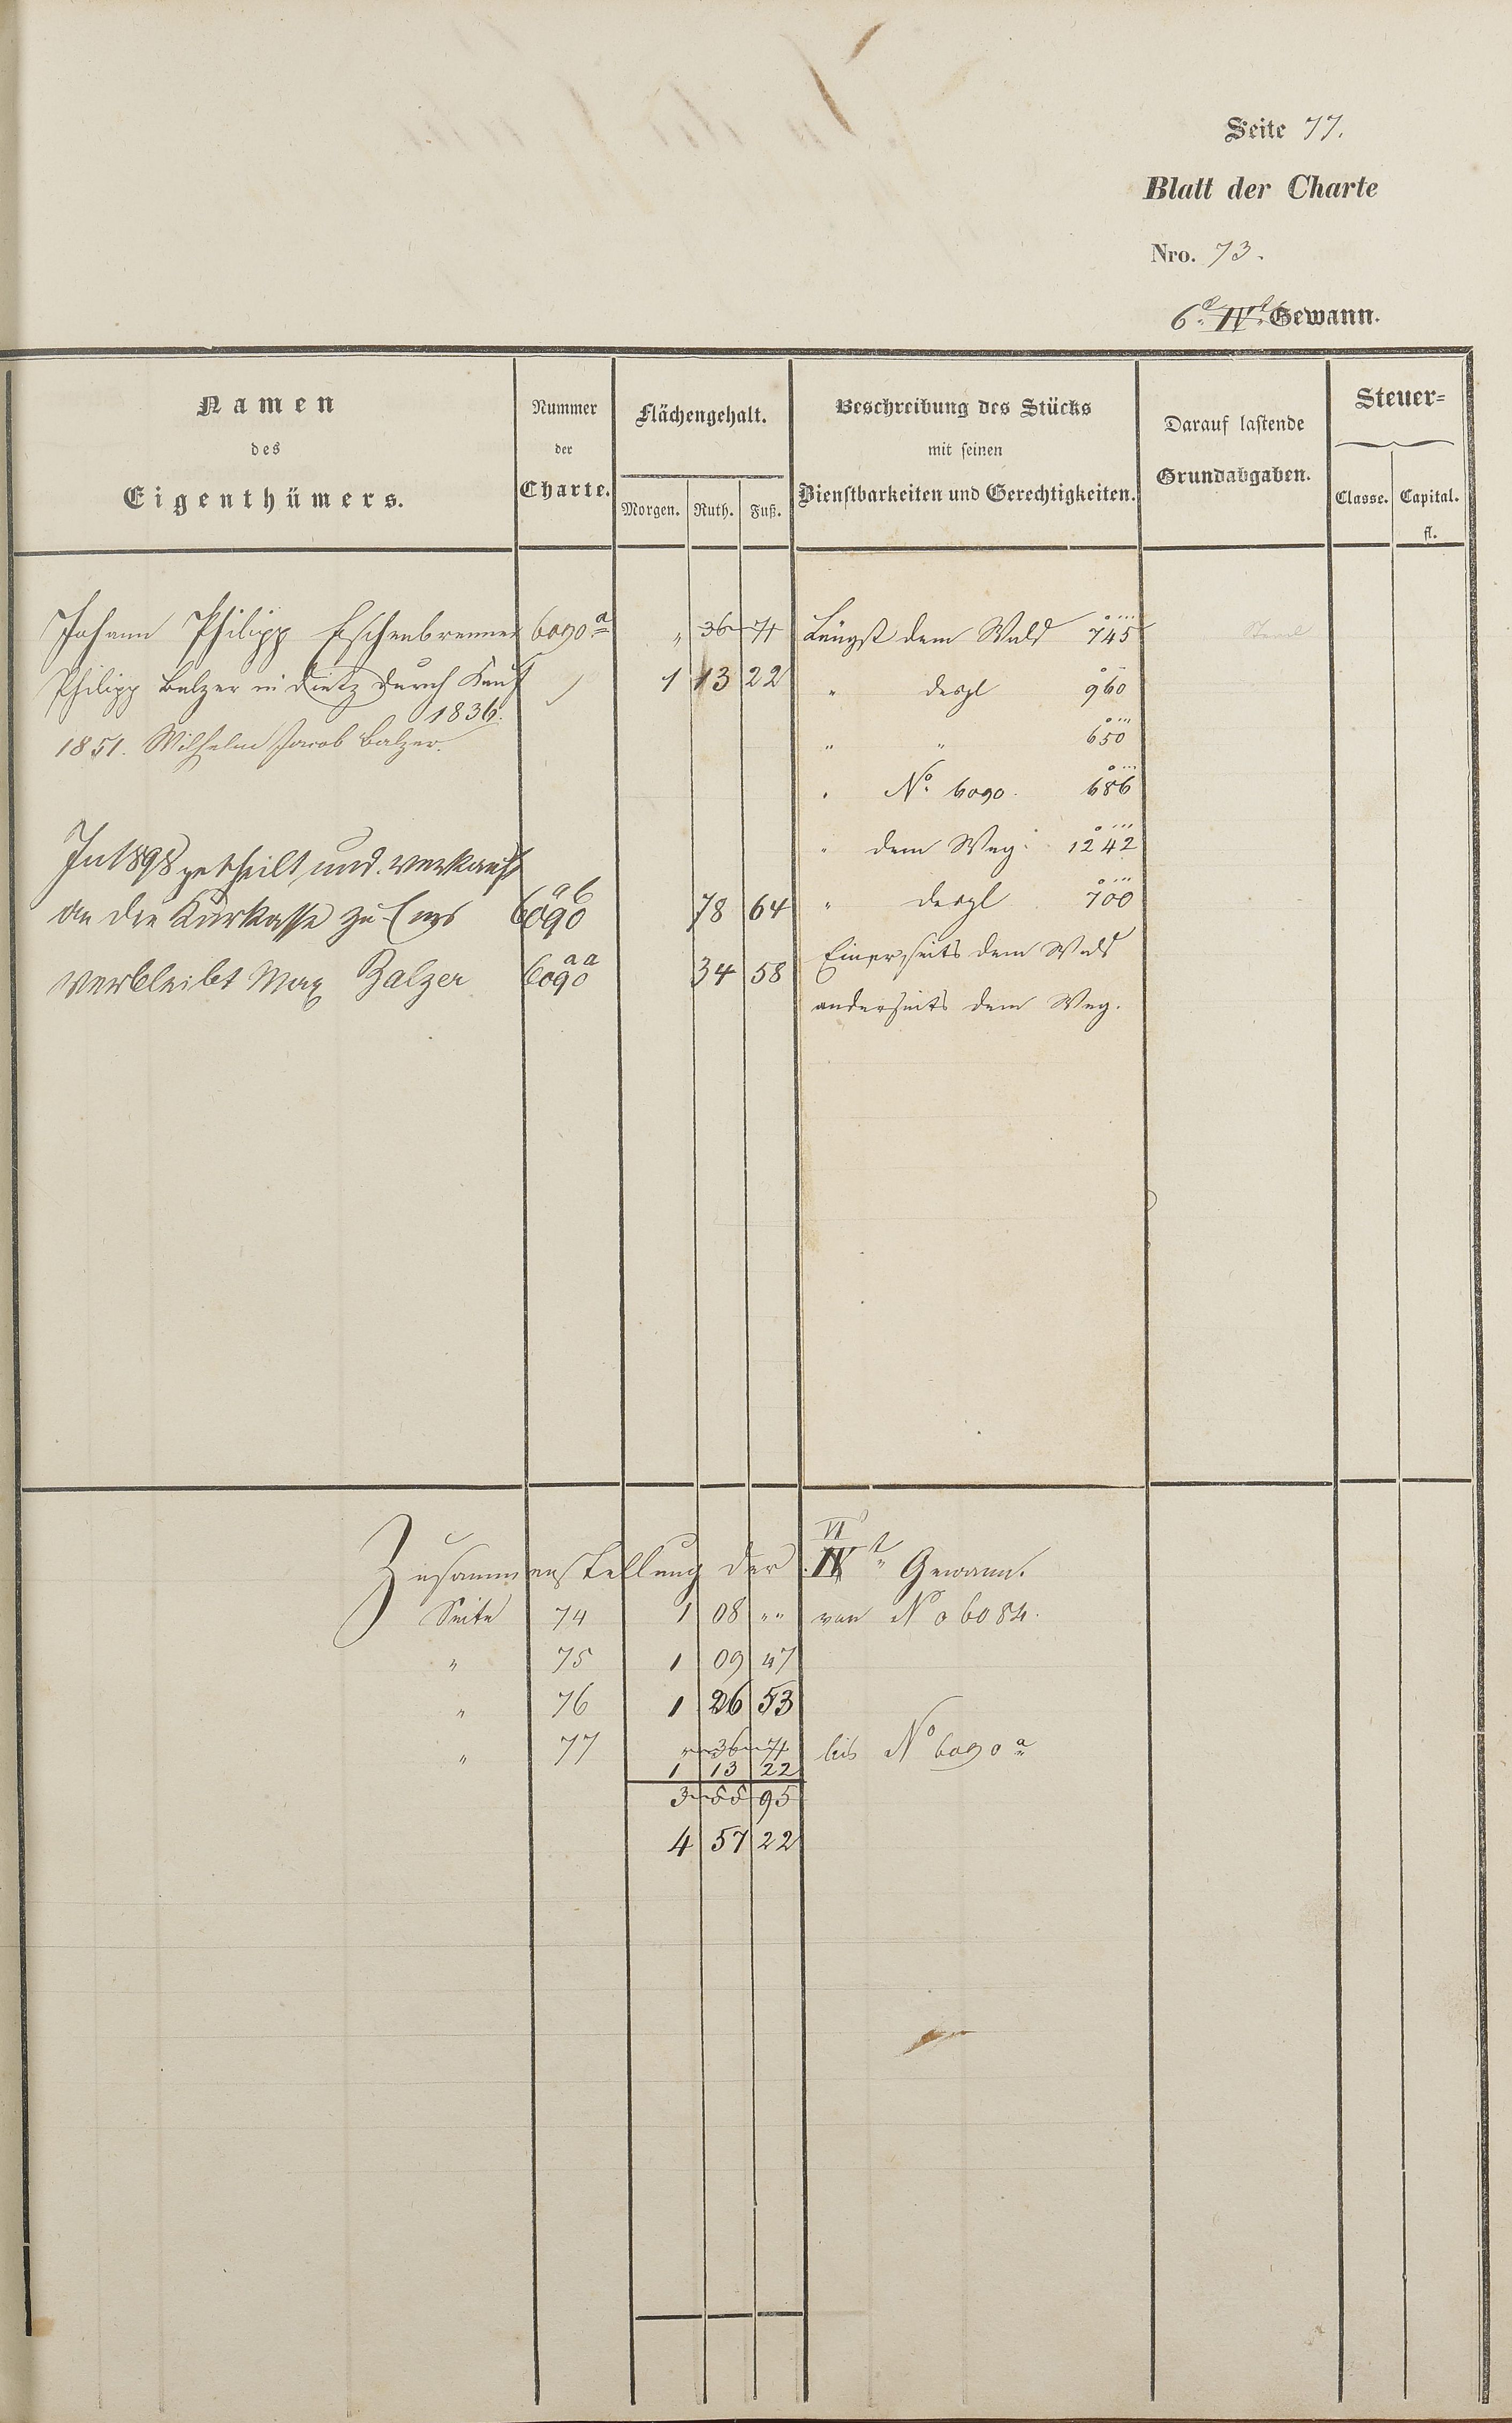 Seite 77.
Blatt der Charte
Nro. 73.
6te IVte Gewann.
Namen
des
Eigenthümers.
Nummer
der
Charte.
Flächengehalt.
Morgen. Ruth. Fuß.
Beschreibung des Stücks
mit seinen
Dienstbarkeiten und Gerechtigkeiten.
Darauf lastende
Grundabgaben.
Steuer-
Classe. Capital.
fl.
Johann Philipp Eschenbrenner 6090a " 36 71 Längst dem Wald 745
Philipp Balzer in Dietz durch Kauf 1 13 22 " desgl 960
1836.
1851. Wilhelm Jacob Balzer. " " 650
" No 6090. 686
In 1898 getheilt und verkauft " dem Weg 1242
an die Kurkasse zu Ems 6090ab 78 64 " desgl 700
verbleibt Max Balzer 6090aa 34 58 Einerseits dem Wald
anderseits dem Weg.
Zusammenstellung der VI IVte Gewann.
Seite 74 1 08 " " von No 6084.
" 75 1 09 47
" 76 1 26 53
" 77 " 36 71 bis No 6090a
1 13 22
3 55 95
4 57 22